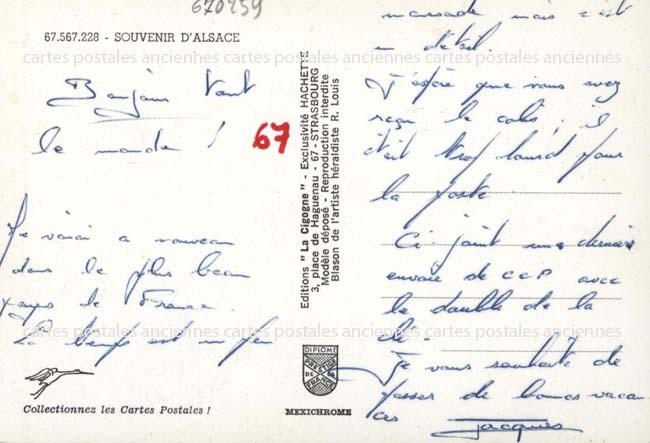 670259
67.567.228 - SOUVENIR D'ALSACE
Bonjour tout
le monde !
67
Me voici a nouveau
dans le plus beau
pays de France.
Le temps est un peu
Collectionnez les Cartes Postales !
Editions " La Cigogne " - Exclusivité HACHETTE
3, place de Haguenau - 67 - STRASBOURG
Modèle déposé - Reproduction interdite
Blason de l'artiste héraldiste R. Louis
DIPLOME
PRESTIGE
DE LA
FRANCE
MEXICHROME
maussade mais c'est
un détail.
J'espère que vous avez
reçu le colis ; il
était trop lourd pour
la poste
Ci joint un dernier
envoie de CCP avec
le double de la
clé.
Je vous souhaite de
passer de bonnes vacan
ces Jacques
cartes postales anciennes cartes postales anciennes cartes postales anciennes
cartes postales anciennes cartes postales anciennes cartes postales anciennes